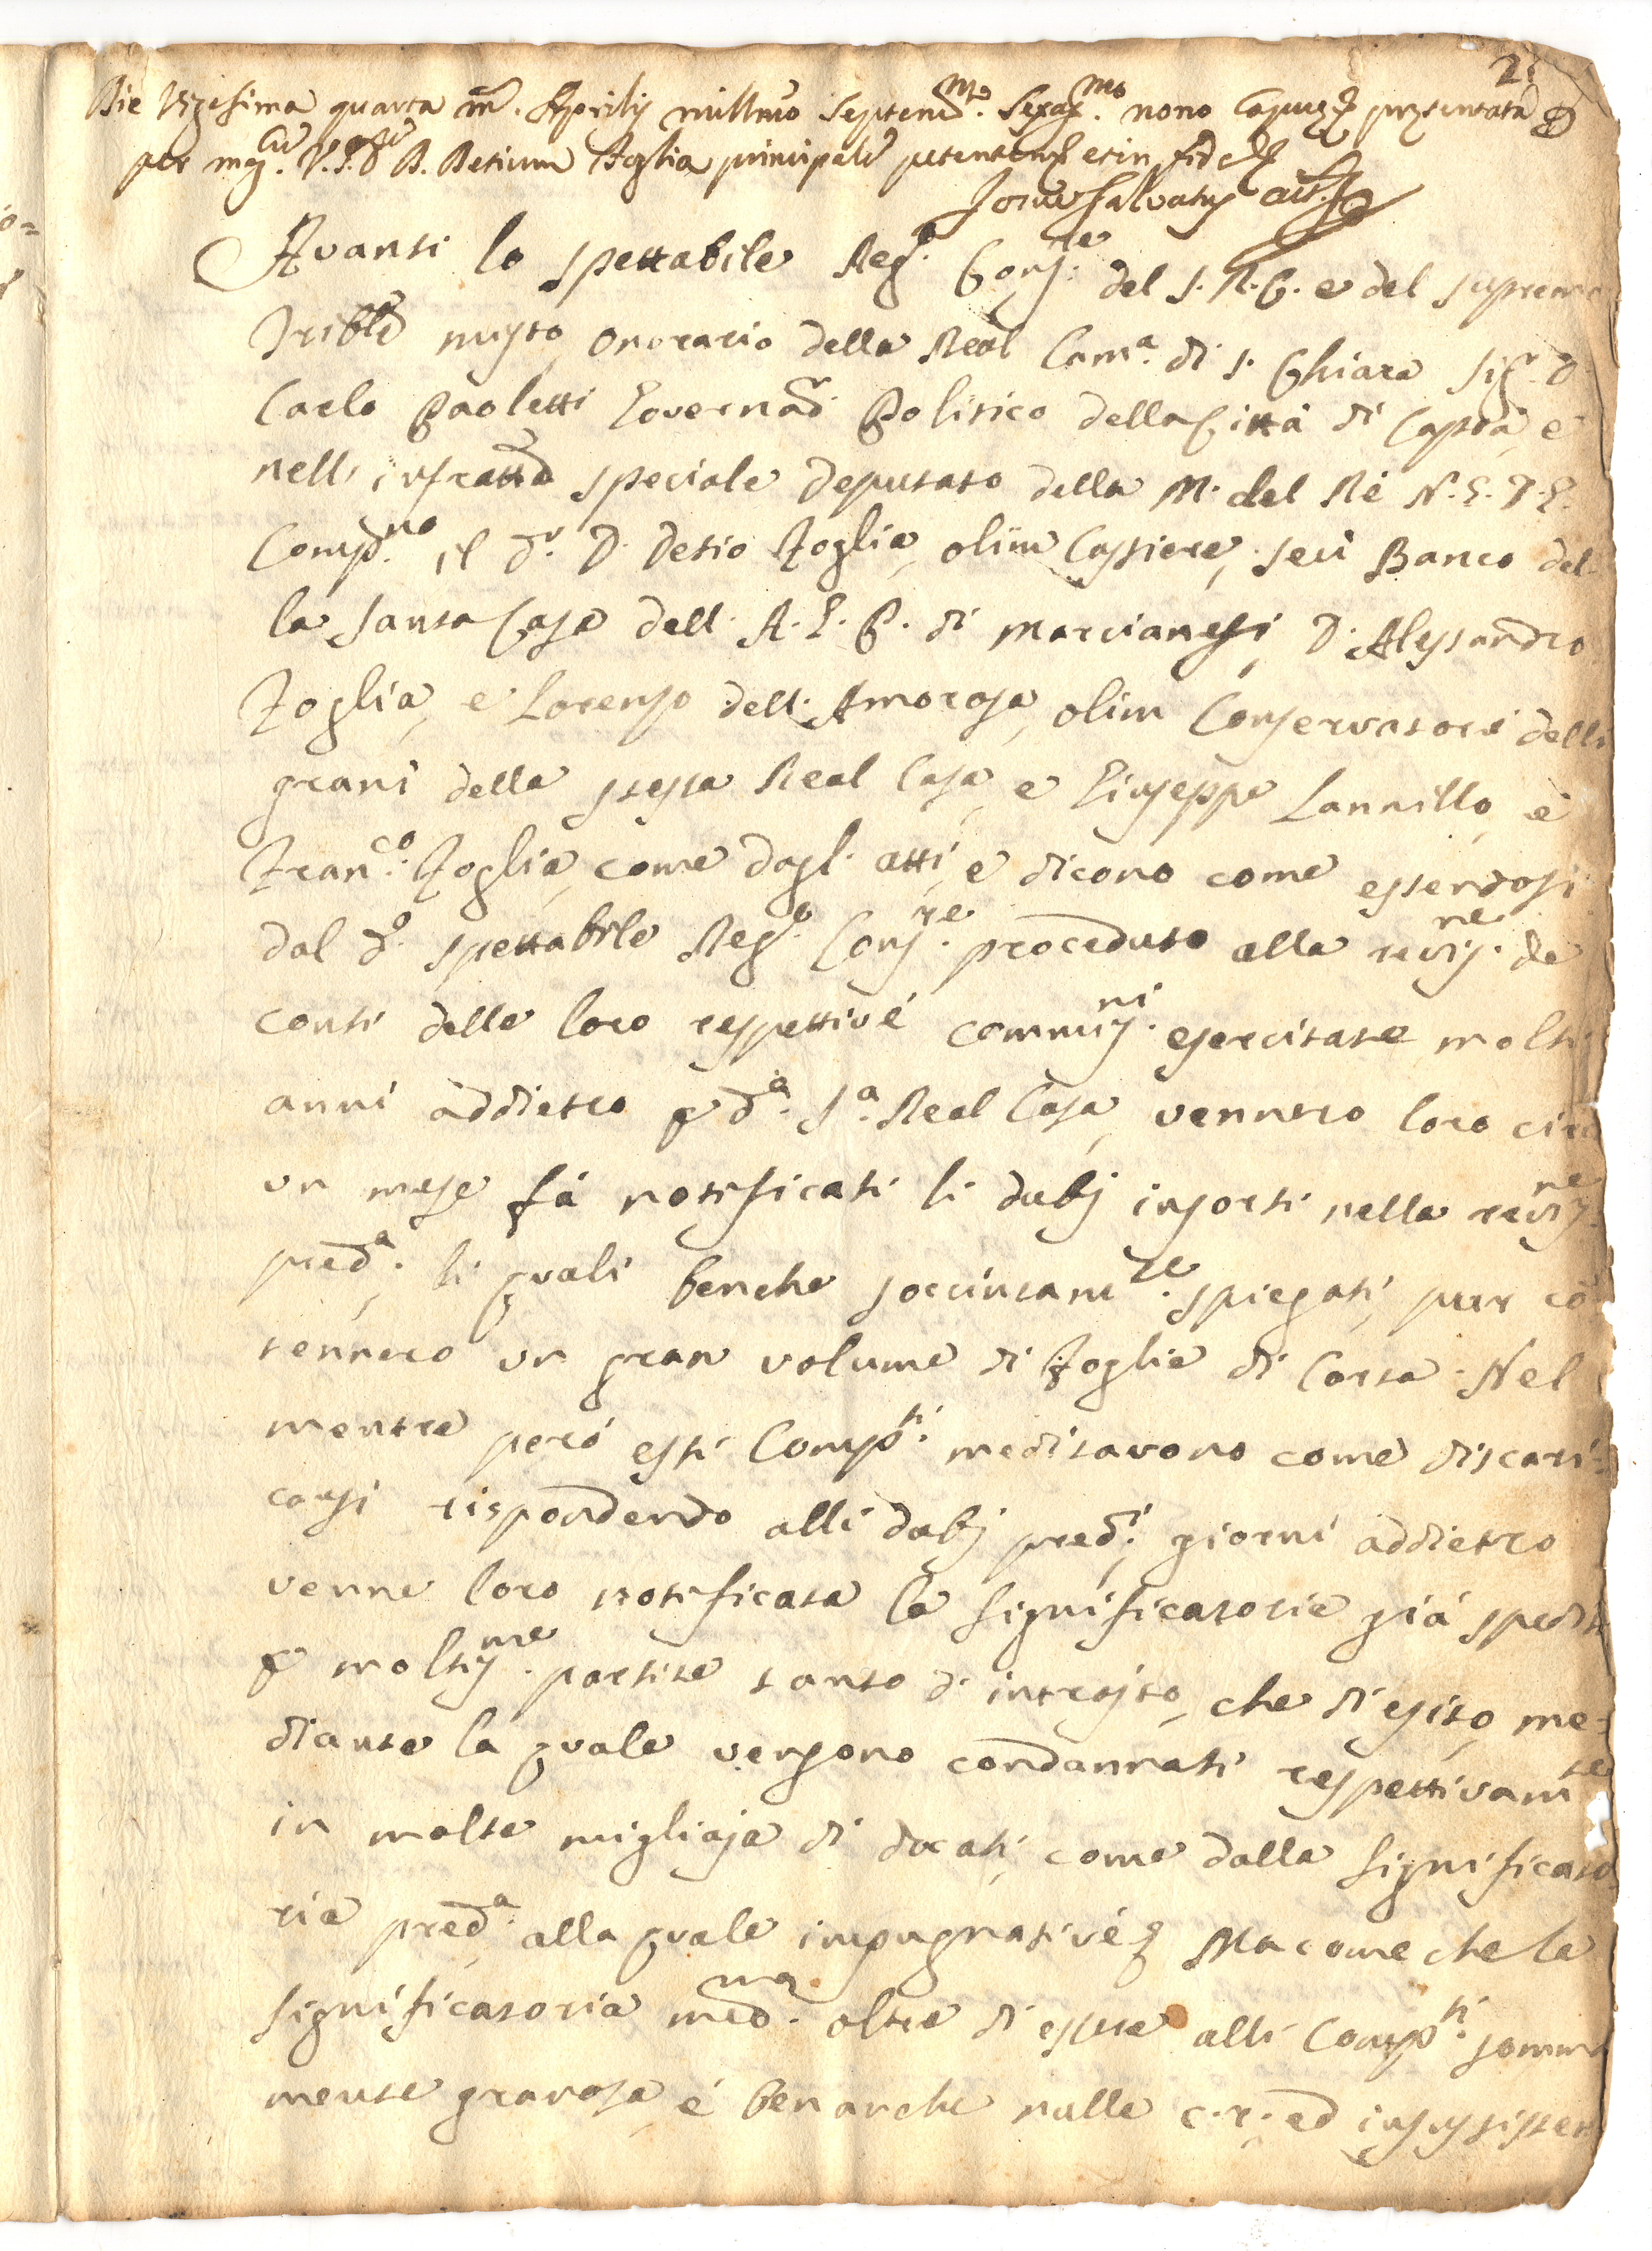 2
Die Vigesima quarta m. Aprilis mill.mo Septen.mo Sexag.mo nono Capuę pręsentata
per mag.cu V.J.D. D. Detium Foglia principale petentem et in fide
Josue Salvatus act.s
Avanti lo spettabile Reg.o Cons.re del S. R. C. e del supremo
Trible misto, onorario della Real Cam.a di S. Chiara Sig.r D.
Carlo Paoletti Governad.r Politico della Città di Capoa, e
nell' infratto speciale deputato della M. del Rè N. S. D. G.
Comp.no il D.r D. Detio Foglia, olim Cassiere, seù Banco del-
la Santa Casa dell' A. G. P. di Marcianesi, D. Alessandro
Foglia, e Lorenzo dell' Amorosa, olim Conservatori delli
grani della stessa Real Casa, e Giuseppe Iannillo, e
Fran.co Foglia, come dagl' atti, e dicono come essendosi
dal d.o spettabile Reg.o Cons.re proceduto alla revis.ne de
conti delle loro respettivé commis.ni esercitate molti
anni addietro p d.a S.a Real Casa, vennero loro circa
un mese fà notificati li dubj insorti nella revis.ne
pred.a, li quali benche soccintam.te spiegati, pur cō
tennero un gran volume di foglie di Carta. Nel
mentre però essi Comp.ti meditavono come discari-
carsi rispondendo alli dubj pred.i, giorni addietro
venne loro notificata la significatoria già spedita
p moltis.me partite tanto d' introjto, che di esito, me-
diante la quale vengono condannati respettivam.te
in molte migliaja di docati, come dalla significato
ria pred.a alla quale impugnativé &. Ma come che la
significatoria med.ma oltre di essere alli Comp.ti somma
mente gravosa, é benanche nulla c. r. ed insussisten